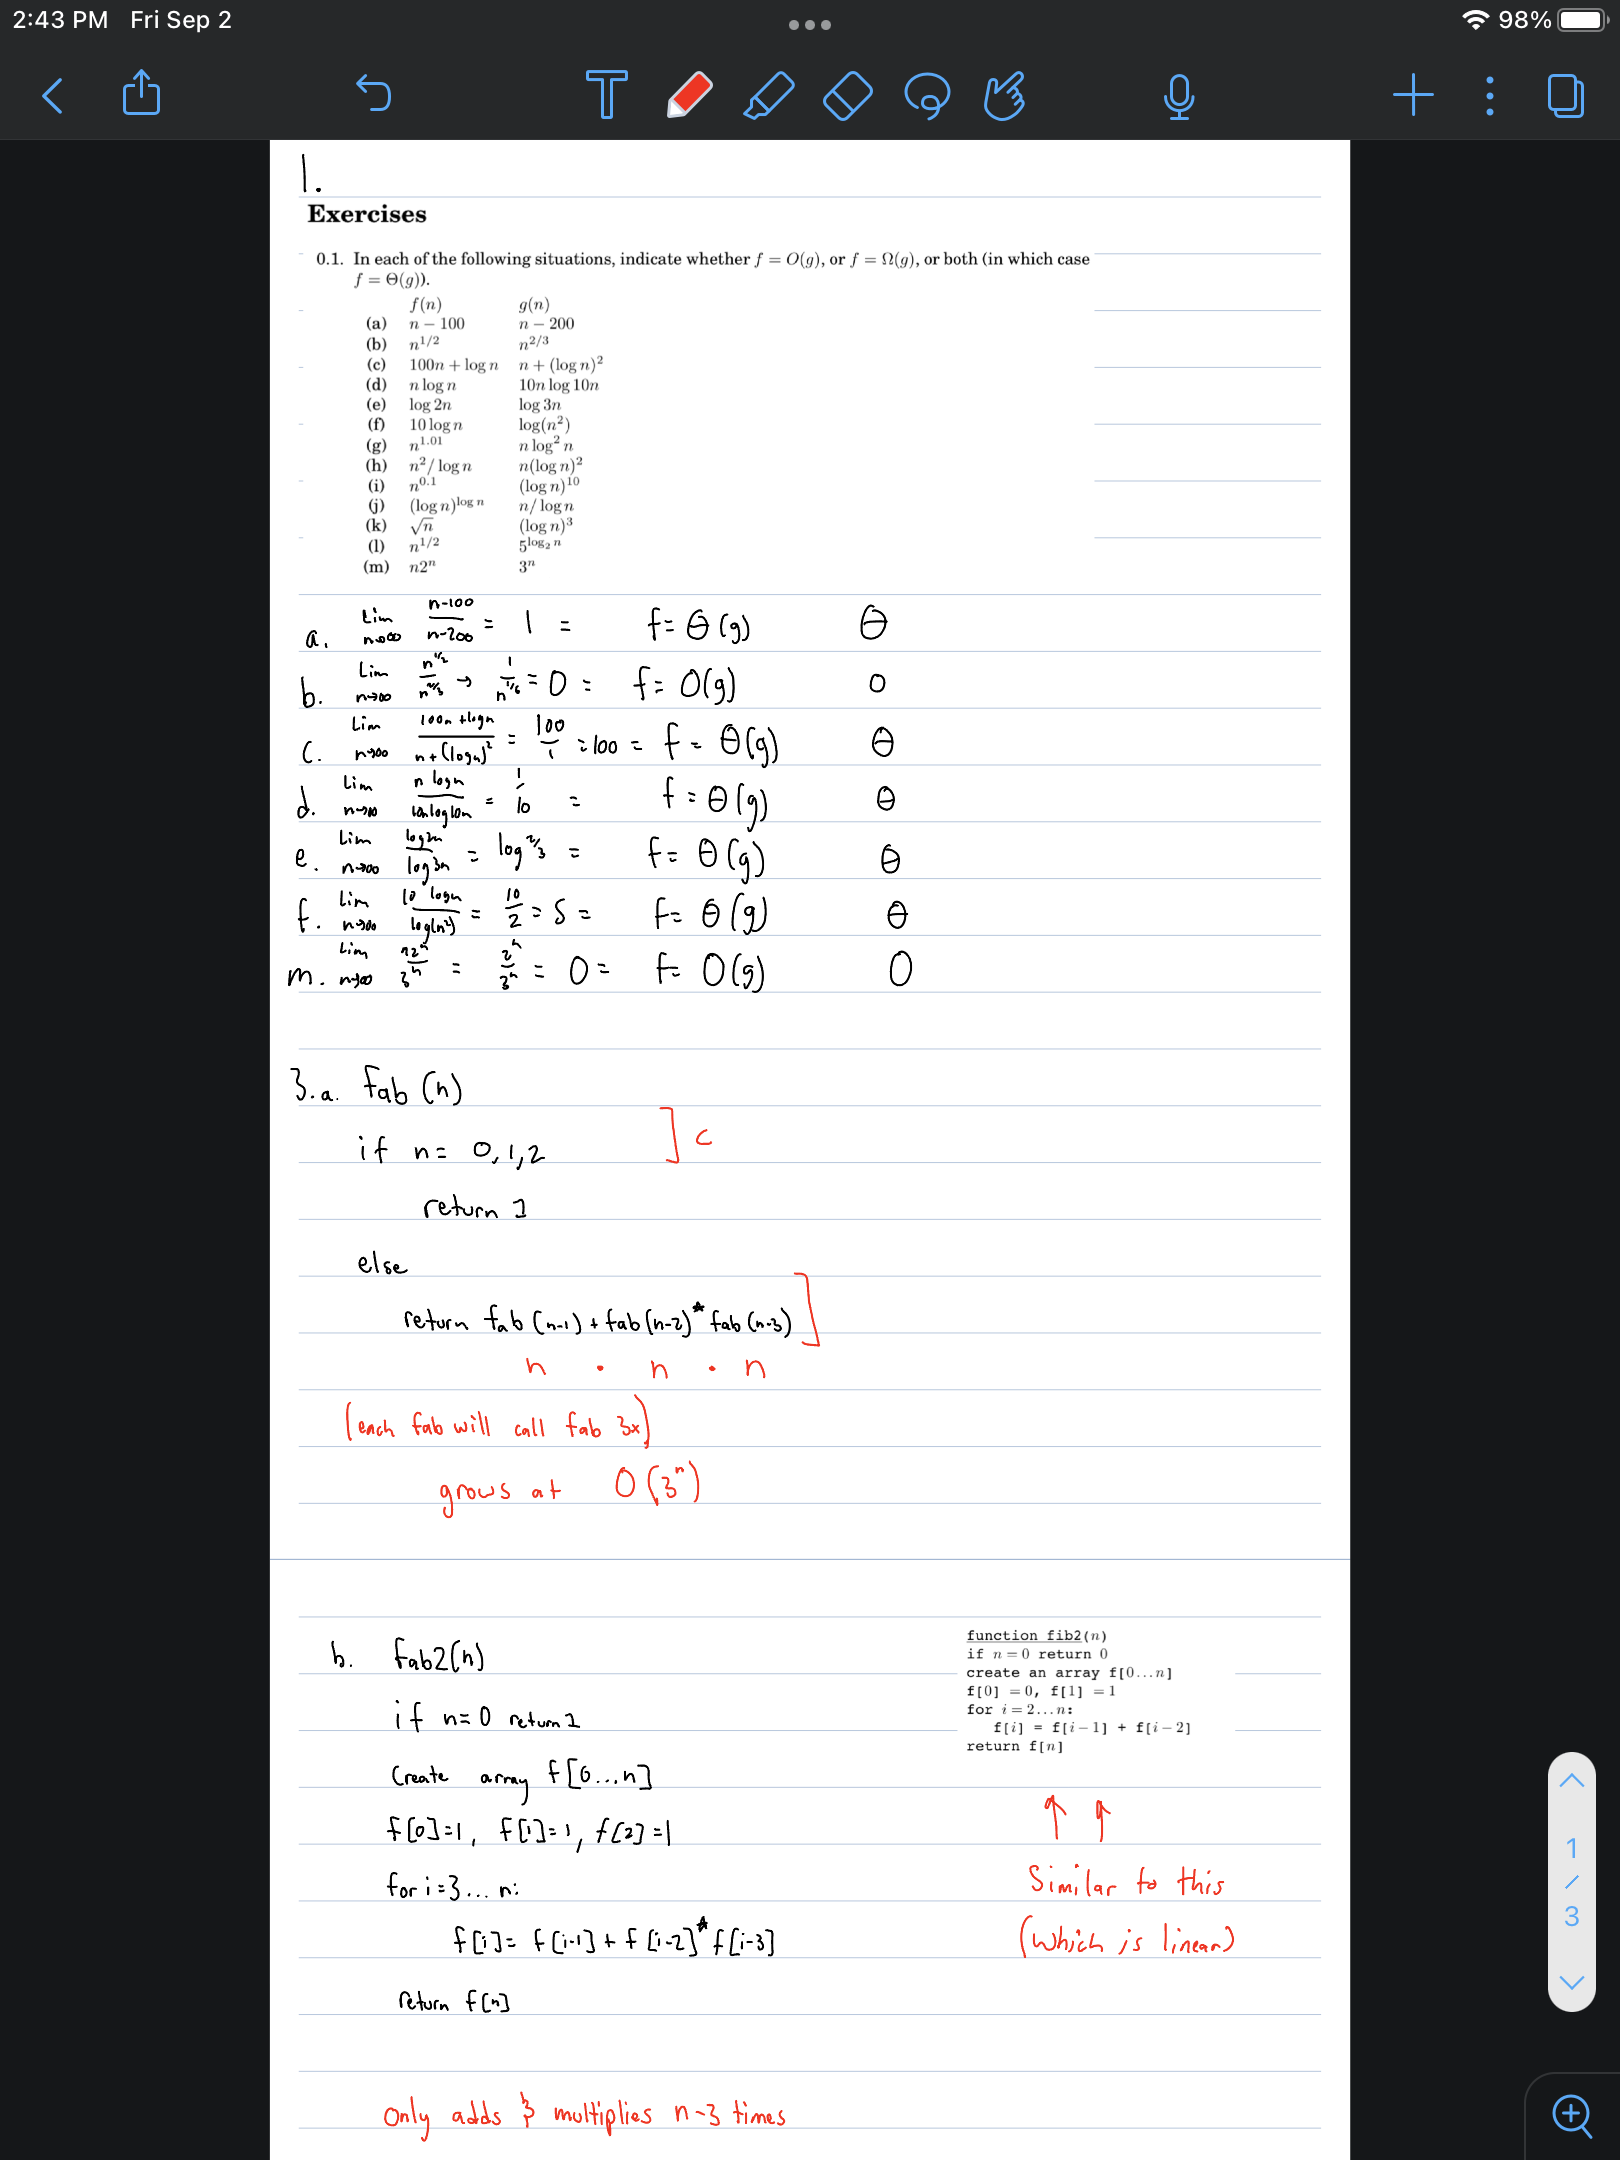 2:43 PM Fri Sep 2 98%
1.
Exercises
0.1. In each of the following situations, indicate whether f = O(g), or f = Ω(g), or both (in which case
f = Θ(g)).
f(n) g(n)
(a) n − 100 n − 200
(b) n^{1/2} n^{2/3}
(c) 100n + log n n + (log n)^2
(d) n log n 10n log 10n
(e) log 2n log 3n
(f) 10 log n log(n^2)
(g) n^{1.01} n log^2 n
(h) n^2/ log n n(log n)^2
(i) n^{0.1} (log n)^{10}
(j) (log n)^{log n} n/ log n
(k) √n (log n)^3
(l) n^{1/2} 5^{log_2 n}
(m) n2^n 3^n
a. Lim n→∞ n-100/n-200 = 1 = f= Θ(g) Θ
b. Lim n→∞ n^{1/2}/n^{2/3} → 1/n^{1/6} = 0 = f= O(g) O
c. Lim n→∞ 100n + logn/n+(logn)^2 = 100/1 = 100 = f = Θ(g) Θ
d. Lim n→∞ n logn/10nlog10n = 1/10 = f = Θ(g) Θ
e. Lim n→∞ log2n/log3n = log^{2/3} = f= Θ(g) Θ
f. Lim n→∞ 10 logn/log(n^2) = 10/2 = 5 = f= Θ(g) Θ
m. Lim n→∞ n2^n/3^n = 2^n/3^n = 0 = f= O(g) O
3.a. fab (n)
if n= 0,1,2 ] c
return 1
else
return fab (n-1) + fab (n-2) * fab (n-3) ]
n · n · n
(each fab will call fab 3x)
grows at O(3^n)
b. fab2(n)
if n=0 return 1
Create array f[0...n]
f[0]=1, f[1]=1, f[2]=1
for i=3... n:
f[i]= f[i-1] + f[i-2] * f[i-3]
return f[n]
function fib2(n)
if n = 0 return 0
create an array f[0...n]
f[0] = 0, f[1] = 1
for i = 2...n:
f[i] = f[i − 1] + f[i − 2]
return f[n]
↑ ↑
Similar to this
(which is linear)
only adds & multiplies n-3 times
1
/
3